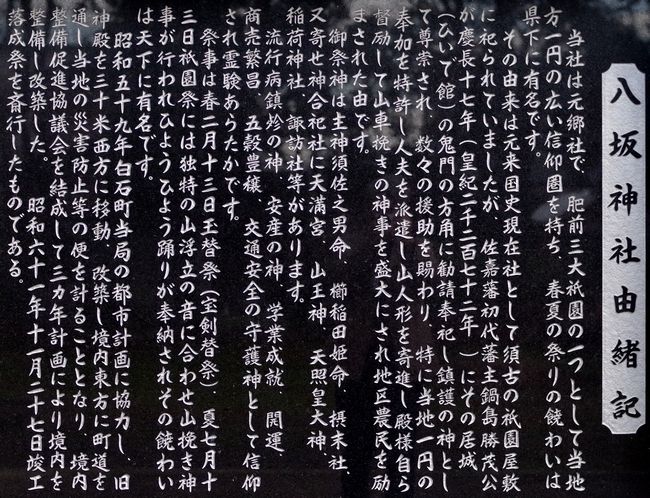 八坂神社由緒記
当社は元郷社で、肥前三大祇園の一つとして当地
方一円の広い信仰圏を持ち、春夏の祭りの饒わいは
県下に有名です。
その由来は元来国史現在社として須古の祇園屋敷
に祀られていましたが、佐嘉藩初代藩主鍋島勝茂公
が慶長十七年(皇紀二千二百七十二年)にその居城
(ひいで館)の鬼門の方角に勧請奉祀し鎮護の神とし
て尊崇され、数々の援助を賜わり、特に当地一円の
奉加を特許し人夫を派遣し山人形を寄進し殿様自ら
督励して山車挽きの神事を盛大にされ地区農民を励
まされた由です。
御祭神は主神須佐之男命、櫛稲田姫命、摂末社、
又寄せ神合祀社に天満宮、山王神、天照皇大神、
稲荷神社、諏訪社等があります。
流行病鎮㱪の神、安産の神、学業成就、開運、
商売繁昌、五穀豊穣、交通安全の守護神として信仰
され霊験あらたかです。
祭事は春二月十三日玉替祭(宝剣替祭)、夏七月十
三日祇園祭には独特の山浮立の音に合わせ山挽き神
事が行われひようひよう踊りが奉納されその饒わい
は天下に有名です。
昭和五十九年白石町当局の都市計画に協力し、旧
神殿を三十米西方に移動、改築し境内東方に町道を
通し当地の災害防止等の便を計ることとなり、境内
整備促進協議会を結成して三カ年計画により境内を
整備し改築した。昭和六十一年十一月二十七日竣工
落成祭を斎行したものである。